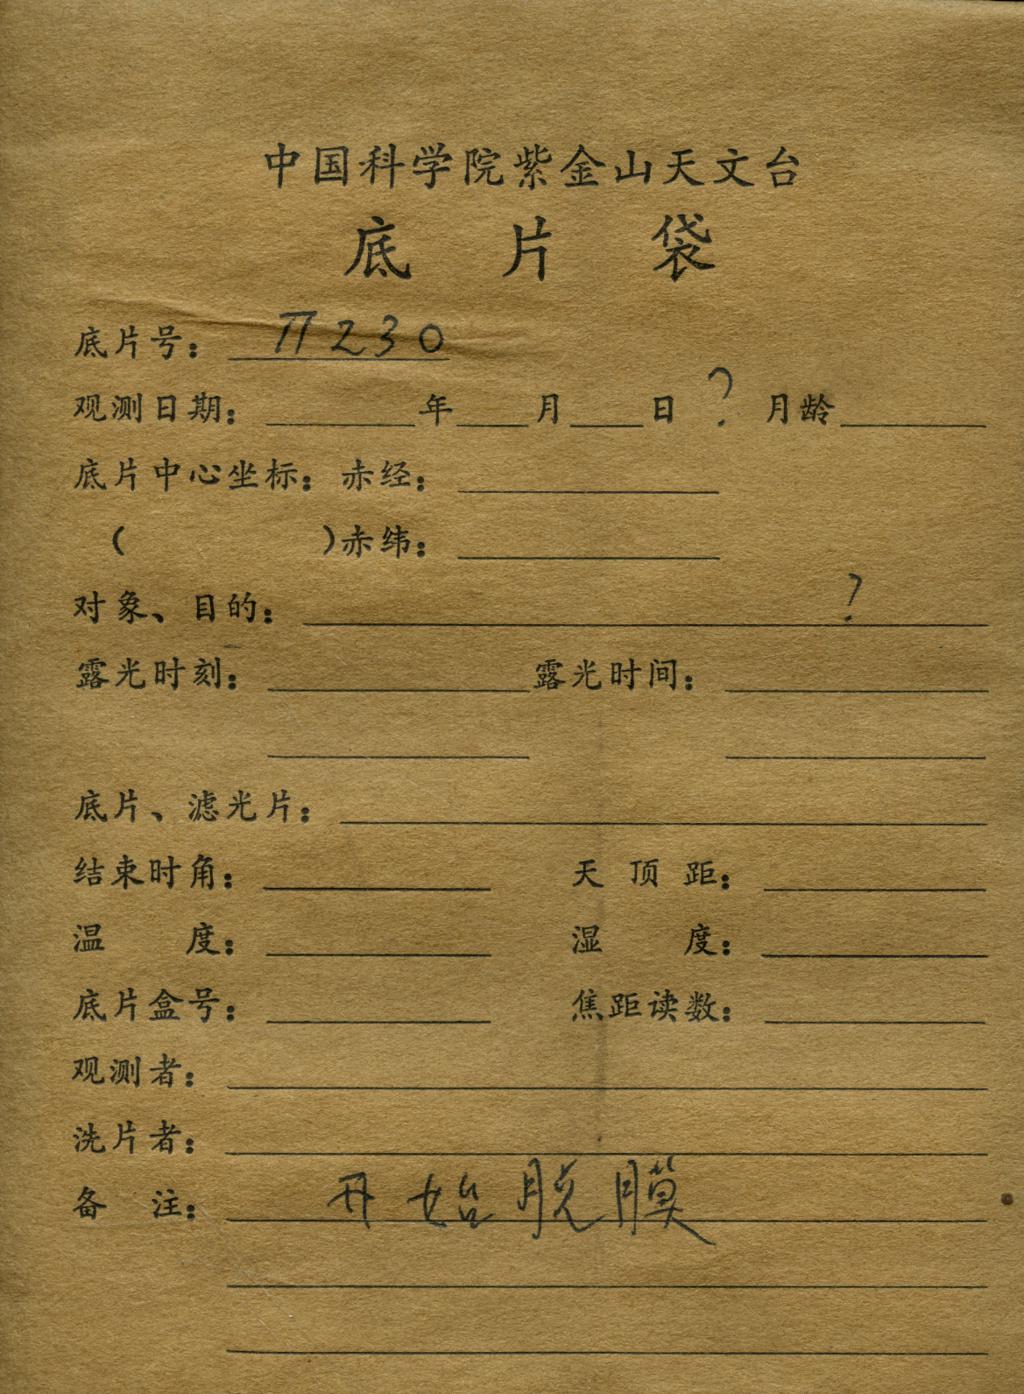 中国科学院紫金山天文台
底片袋
底片号： π230
观测日期： 年 月 日 ? 月龄
底片中心坐标：赤经：
（ ）赤纬：
对象、目的： ?
露光时刻： 露光时间：
底片、滤光片：
结束时角： 天顶距：
温度： 湿度：
底片盒号： 焦距读数：
观测者：
洗片者：
备注： 开始脱膜